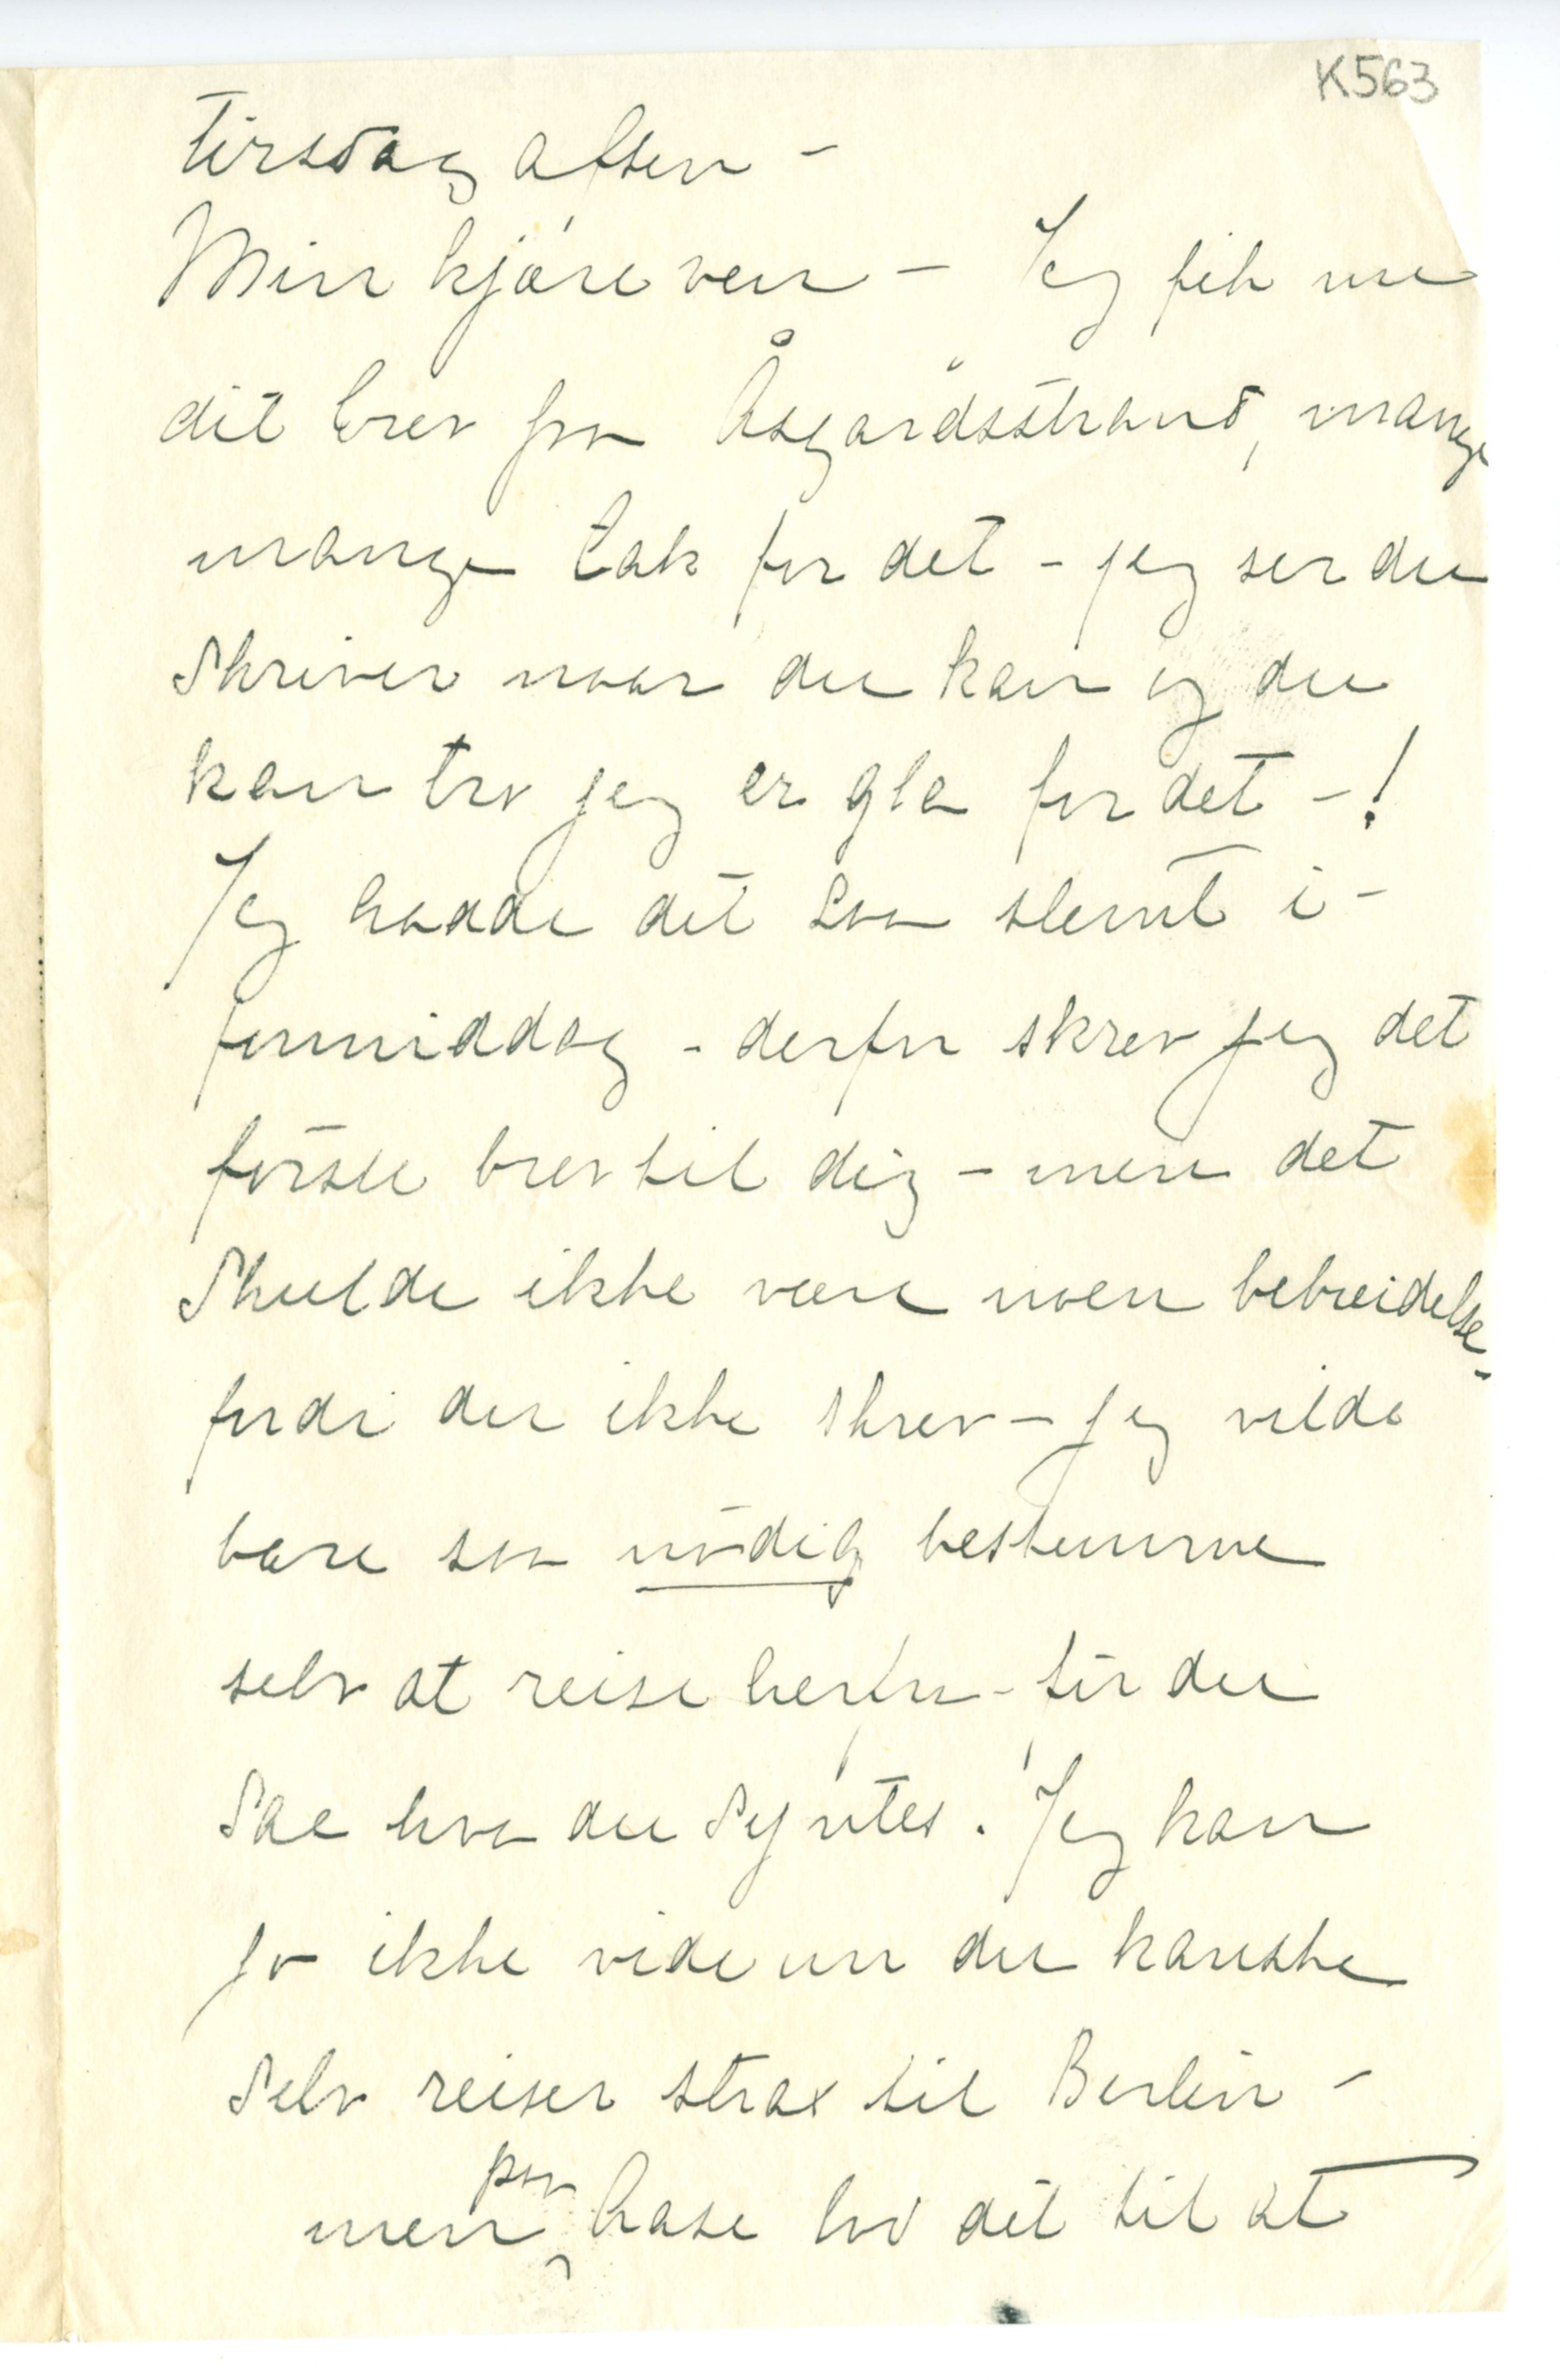 K563
Tirsdag aften -
Min kjære ven - Jeg fik nu
dit brev fra Åsgårdsstrand, mange
mange tak for det - jeg ser du
skriver naar du kan og du
kan tro jeg er gla for det - !
Jeg hadde det saa slemt i -
formiddag - derfor skrev jeg det
förste brev til dig - men det
skulde ikke være noen bebreidelse -
fordi du ikke skrev - jeg vilde
bare saa nödig bestemme
selv at reise herfra - för du
sae hva du syntes. Jeg kan
jo ikke vide om du kanske
selv reiser strax til Berlin -
paa
men hase lød det til at